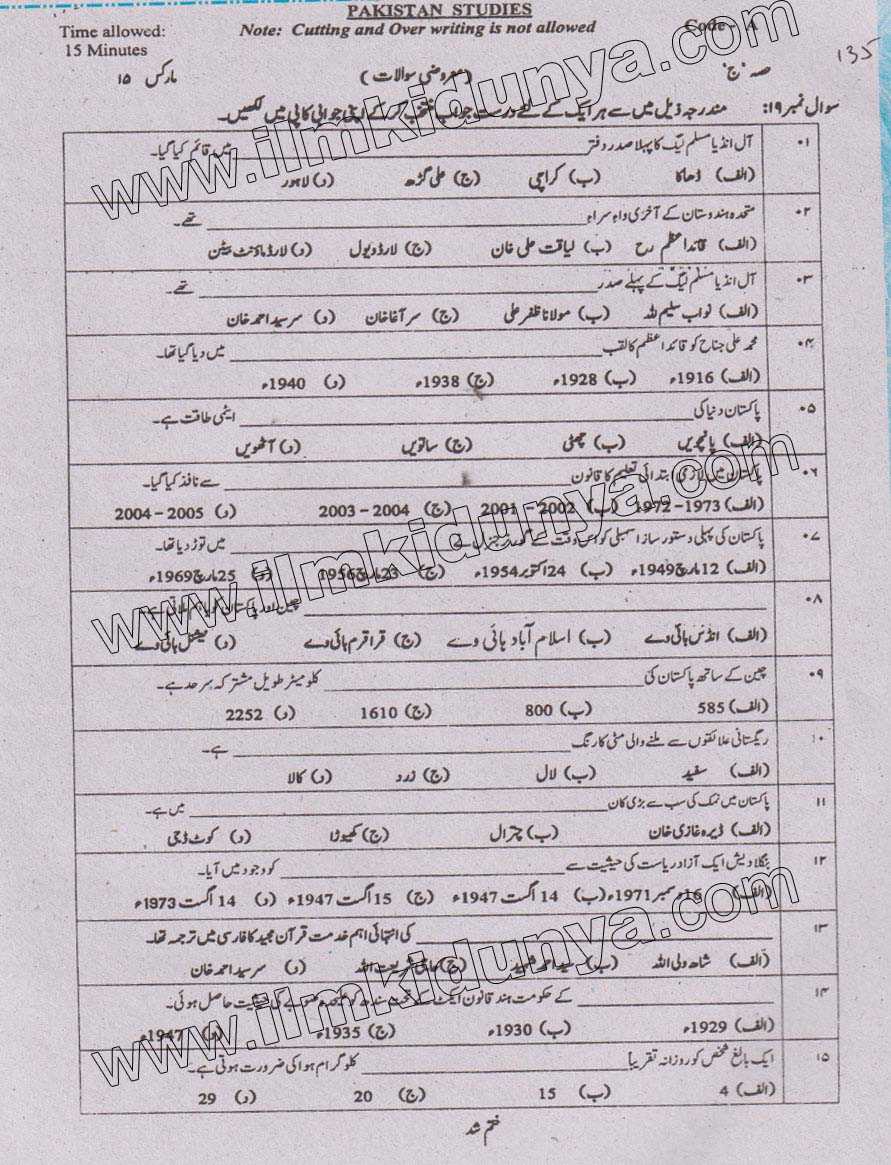 PAKISTAN STUDIES
Time allowed:
15 Minutes
Note: Cutting and Over writing is not allowed
Code - A
135
حصہ "ج"
(معروضی سوالات)
مارکس ۱۵
سوال نمبر ۱۹: مندرجہ ذیل میں سے ہر ایک کے لئے درست جواب منتخب کر کے اپنی جوابی کاپی میں لکھیں۔
۰۱ آل انڈیا مسلم لیگ کا پہلا صدر دفتر ____ میں قائم کیا گیا۔
(الف) ڈھاکا (ب) کراچی (ج) علی گڑھ (د) لاہور
۰۲ متحدہ ہندوستان کے آخری وائسراء ____ تھے۔
(الف) قائد اعظم رح (ب) لیاقت علی خان (ج) لارڈ ویول (د) لارڈ ماؤنٹ بیٹن
۰۳ آل انڈیا مسلم لیگ کے پہلے صدر ____ تھے۔
(الف) نواب سلیم اللہ (ب) مولانا ظفر علی (ج) سر آغا خان (د) سر سید احمد خان
۰۴ محمد علی جناح کو قائد اعظم کا لقب ____ میں دیا گیا تھا۔
(الف) 1916ء (ب) 1928ء (ج) 1938ء (د) 1940ء
۰۵ پاکستان دنیا کی ____ ایٹمی طاقت ہے۔
(الف) پانچویں (ب) چھٹی (ج) ساتویں (د) آٹھویں
۰۶ پاکستان میں لازمی ابتدائی تعلیم کا قانون ____ سے نافذ کیا گیا۔
(الف) 1972-1973 (ب) 2001-2002 (ج) 2003-2004 (د) 2004-2005
۰۷ پاکستان کی پہلی دستور ساز اسمبلی کو اس وقت کے گورنر جنرل نے ____ میں توڑ دیا تھا۔
(الف) 12 مارچ 1949ء (ب) 24 اکتوبر 1954ء (ج) 23 مارچ 1956ء (د) 25 مارچ 1969ء
۰۸ ____ چین اور پاکستان کو باہم ملاتی ہے۔
(الف) انڈس ہائی وے (ب) اسلام آباد ہائی وے (ج) قراقرم ہائی وے (د) نیشنل ہائی وے
۰۹ چین کے ساتھ پاکستان کی ____ کلو میٹر طویل مشترکہ سرحد ہے۔
(الف) 585 (ب) 800 (ج) 1610 (د) 2252
۱۰ ریگستانی علائقوں سے ملنے والی مٹی کا رنگ ____ ہے۔
(الف) سفید (ب) لال (ج) زرد (د) کالا
۱۱ پاکستان میں نمک کی سب سے بڑی کان ____ میں ہے۔
(الف) ڈیرہ غازی خان (ب) چترال (ج) کھیوڑا (د) کوٹ ڈجی
۱۲ بنگلا دیش ایک آزاد ریاست کی حیثیت سے ____ کو وجود میں آیا۔
(الف) 16 دسمبر 1971ء (ب) 14 اگست 1947ء (ج) 15 اگست 1947ء (د) 14 اگست 1973ء
۱۳ ____ کی انتہائی اہم خدمت قرآن مجید کا فارسی میں ترجمہ تھا۔
(الف) شاہ ولی اللہ (ب) سید احمد شہید (ج) حاجی شریعت اللہ (د) سر سید احمد خان
۱۴ ____ کے حکومت ہند قانون ایکٹ کے تحت سندھ کو علیحدہ صوبے کی حیثیت حاصل ہوئی۔
(الف) 1929ء (ب) 1930ء (ج) 1935ء (د) 1947ء
۱۵ ایک بالغ شخص کو روزانہ تقریباً ____ کلو گرام ہوا کی ضرورت ہوتی ہے۔
(الف) 4 (ب) 15 (ج) 20 (د) 29
ختم شد
www.ilmkidunya.com
www.ilmkidunya.com
www.ilmkidunya.com